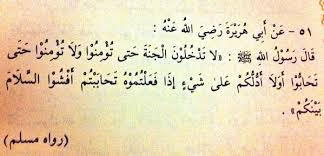 ٥١ - عَنْ أَبِي هُرَيْرَةَ رَضِيَ اللهُ عَنْهُ :
قَالَ رَسُوْلُ اللهِ ﷺ : «لَا تَدْخُلُوْنَ الْجَنَّةَ حَتَّى تُؤْمِنُوْا وَلَا تُؤْمِنُوْا حَتَّى
تَحَابُّوْا أَوَلَا أَدُلُّكُمْ عَلَىٰ شَيْءٍ إِذَا فَعَلْتُمُوْهُ تَحَابَبْتُمْ أَفْشُوْا السَّلَامَ
بَيْنَكُمْ» .
(رواه مسلم)